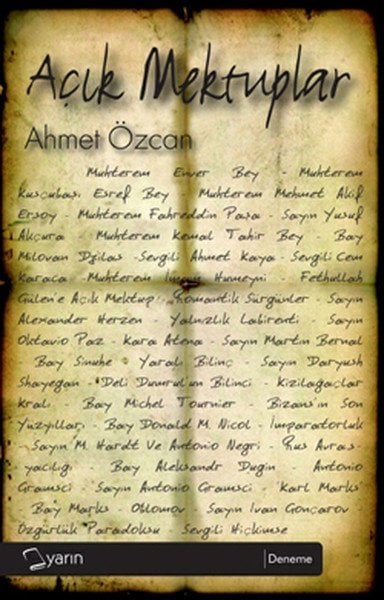 Açık Mektuplar
Ahmet Özcan
Muhterem Enver Bey - Muhterem
Kuşçubaşı Eşref Bey - Muhterem Mehmet Akif
Ersoy - Muhterem Fahreddin Paşa - Sayın Yusuf
Akçura - Muhterem Kemal Tahir Bey - Bay
Milovan Dzilas -Sevgili Ahmet Kaya - Sevgili Cem
Karaca - Muhterem İmam Humeyni - Fethullah
Gülen'e Açık Mektup - Romantik Sürgünler - Sayın
Alexander Herzen - Yalnızlık Labirenti - Sayın
Oktavio Paz - Kara Atena - Sayın Martin Bernal
- Bay Sinuhe - Yaralı Bilinç - Sayın Daryush
Shayegan - 'Deli Dumrul'un Bilinci - Kızılağaçlar
Kralı - Bay Michel Tournier - Bizans'ın Son
Yüzyılları - Bay Donald M. Nicol - İmparatorluk
- Sayın M. Hardt Ve Antonio Negri - 'Rus Avras-
yacılığı - Bay Aleksandr Dugin - Antonio
Gramsci - Sayın Antonio Gramsci - 'Karl Marks'
- Bay Marks - Oblomov - Sayın Ivan Gonçarov -
Özgürlük Paradoksu - Sevgili Hiçkimse
yarın
Deneme